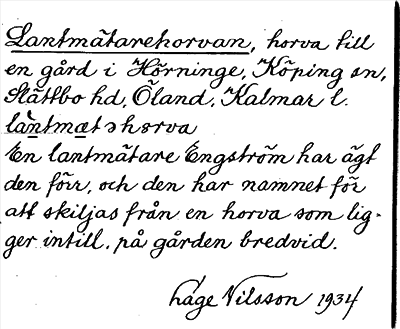 Lantmätarehorvan, horva till
en gård i Hörninge, Köping sn,
Slättbo hd, Öland, Kalmar l.
la̱ntma̱tɔhɵrva
En lantmätare Engström har ägt
den förr, och den har namnet för
att skiljas från en horva som lig-
ger intill, på gården bredvid.
Håge Nilsson 1934